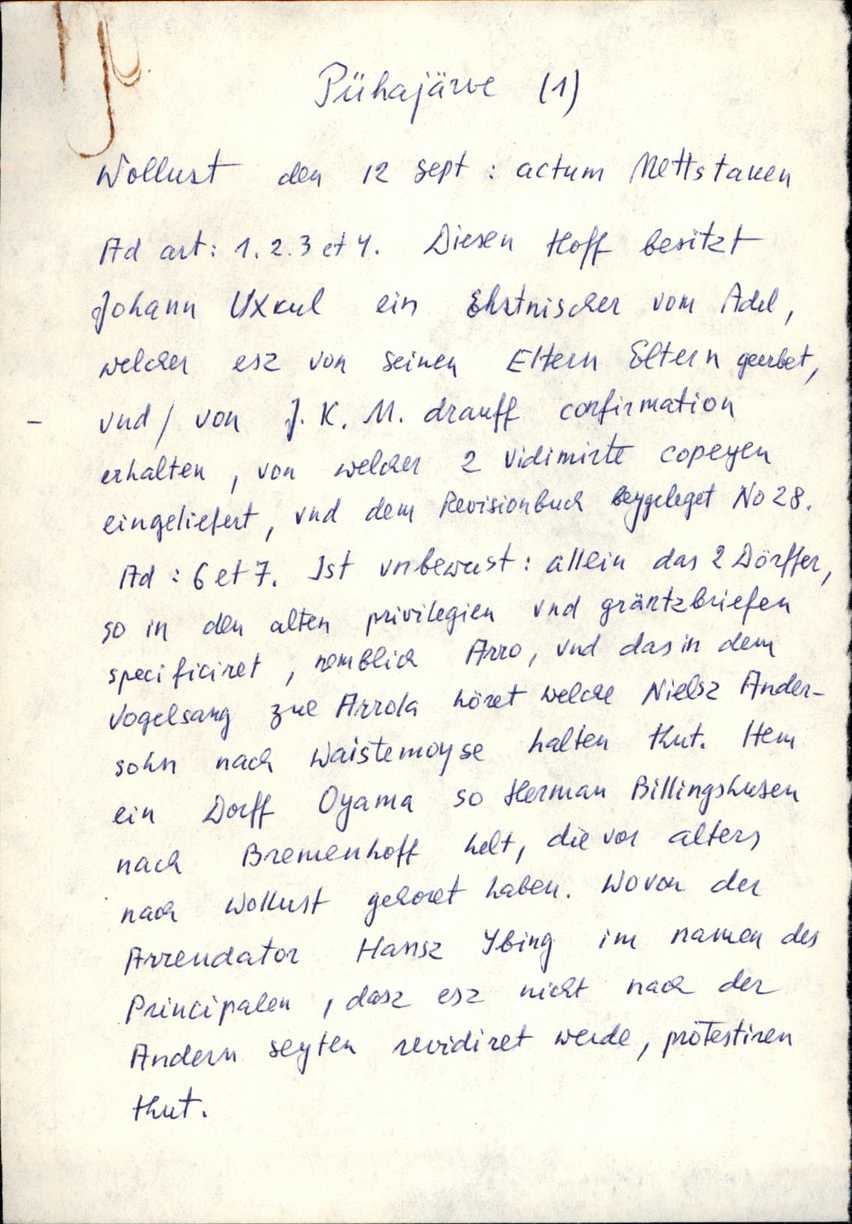 Pühajärve (1)
Wollust den 12 sept : actum Mettstaken
Ad art: 1. 2. 3 et 4. Diesen Hoff besitzt
Johann Uxkul ein Ehstnischer vom Adel,
welcher esz von seinen Eltern Eltern geerbet,
vnd / von J. K. M. drauff confirmation
erhalten, von welcher 2 vidimirte copeyen
eingeliefert, vnd dem Revisionbuch beygeleget No 28.
Ad : 6 et 7. Ist vnbewust : allein das 2 Dörffer,
so in den alten privilegien vnd gräntzbriefen
specificiret, nemblich Arro, vnd das in dem
Vogelsang zue Arrola höret welche Nielsz Ander-
sohn nach Waistemoyse halten thut. Item
ein Dorff Oyama so Herman Billingshusen
nach Bremenhoff helt, die vor alters
nach Wollust gehoret haben. Wovon der
Arrendator Hansz Ybing im namen des
Principalen, dasz esz nicht nach der
Andern seyten revidiret werde, protestiren
thut.